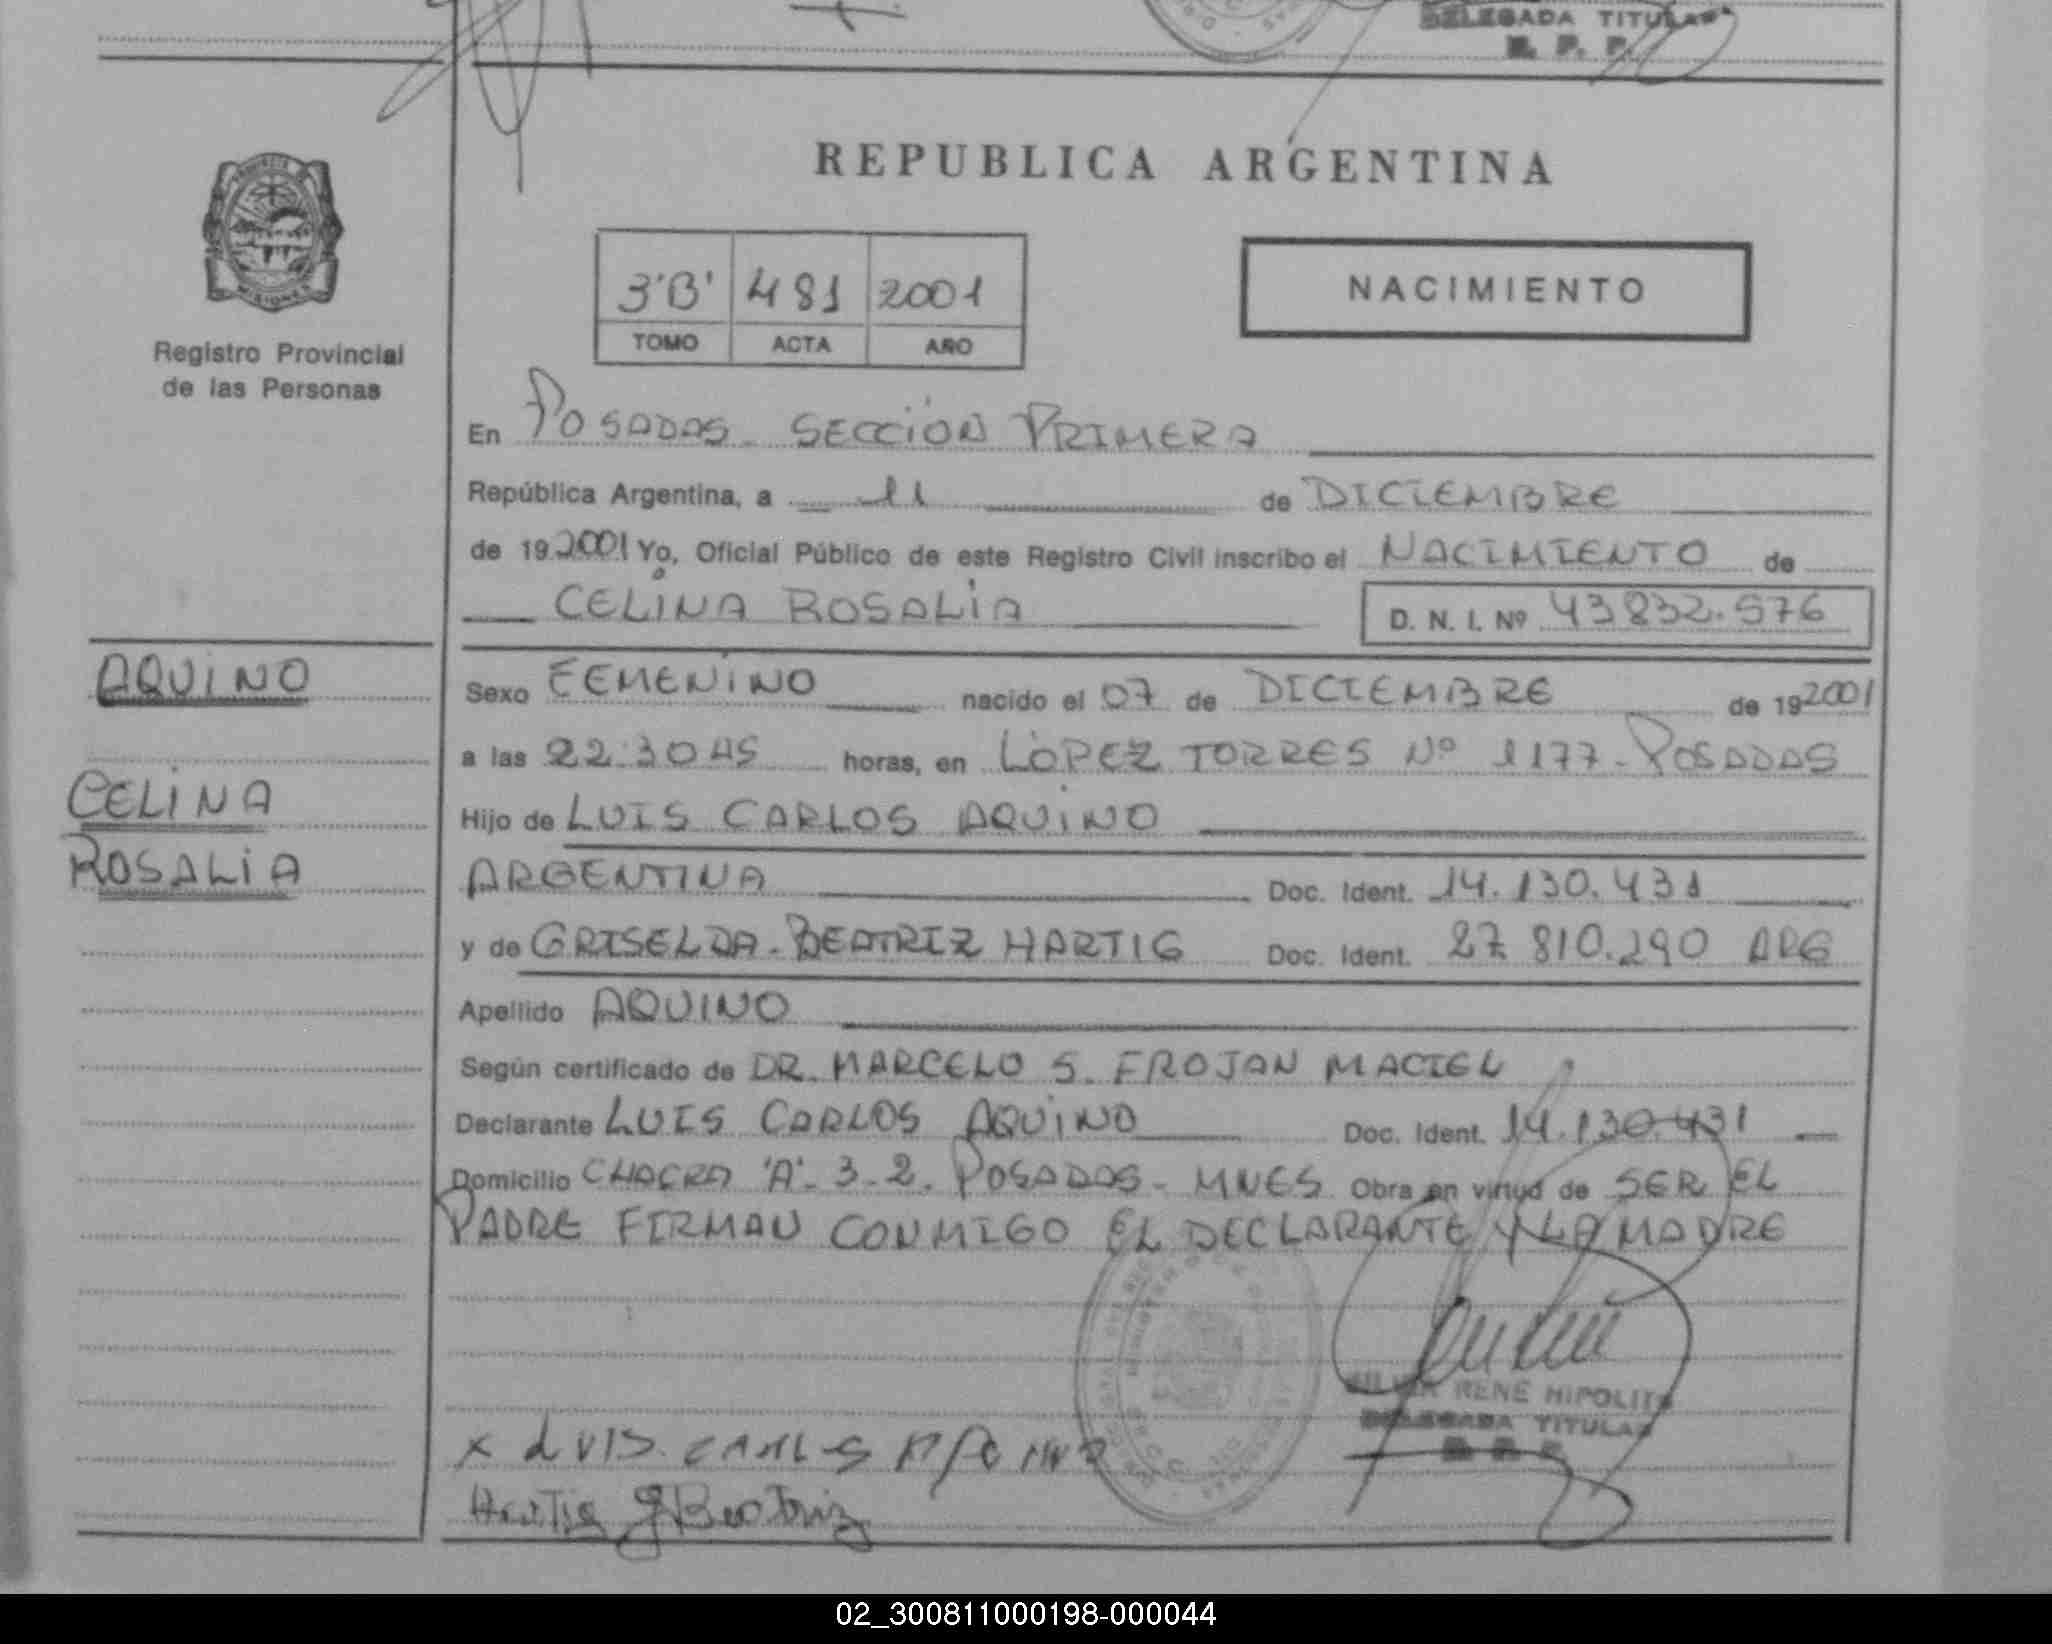 DELEGADA TITULAR
R. P. P.
REPUBLICA ARGENTINA
PROVINCIA DE
MISIONES
Registro Provincial
de las Personas
3'B' 481 2001
TOMO ACTA AÑO
NACIMIENTO
En POSADAS - SECCIÓN PRIMERA
República Argentina, a 11 de DICIEMBRE
de 19 2001 Yo, Oficial Público de este Registro Civil inscribo el NACIMIENTO de
CELINA ROSALÍA D. N. I. Nº 43832.576
AQUINO
CELINA
ROSALÍA
Sexo FEMENINO nacido el 07 de DICIEMBRE de 19 2001
a las 22:30 HS horas, en LÓPEZ TORRES Nº 1177 - POSADAS
Hijo de LUIS CARLOS AQUINO
ARGENTINA Doc. Ident. 14.130.431
y de GRISELDA - BEATRIZ HARTIG Doc. Ident. 27.810.290 ARG
Apellido AQUINO
Según certificado de DR. MARCELO S. FROJAN MACIEL
Declarante LUIS CARLOS AQUINO Doc. Ident. 14.130.431
Domicilio CHACRA 'A' - 3 - 2. POSADAS - MNES Obra en virtud de SER EL
PADRE FIRMAN CONMIGO EL DECLARANTE Y LA MADRE
RENE HIPOLITO
DELEGADA TITULAR
X LUIS CARLOS AQUINO
Hartig G Beatriz
02_300811000198-000044